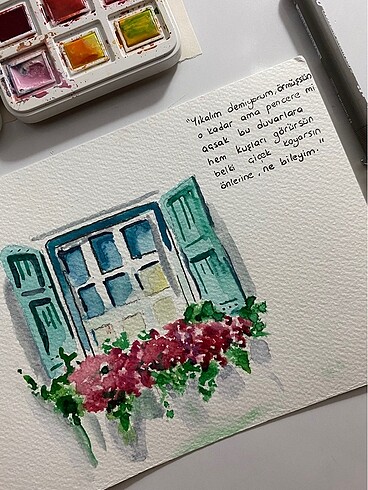 "Yıkalım demiyorum, örmüşsün
o kadar ama pencere mi
açsak bu duvarlara
hem kuşları görürsün
belki çiçek koyarsın
önlerine, ne bileyim."